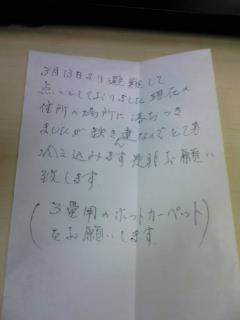 3月13日より避難して
点々としておりました現在の
住所の場所に落ちつき
ましたが鉄き
冷え込みます是非お願い
致します
(3畳用のホットカーペット
をお願いします)